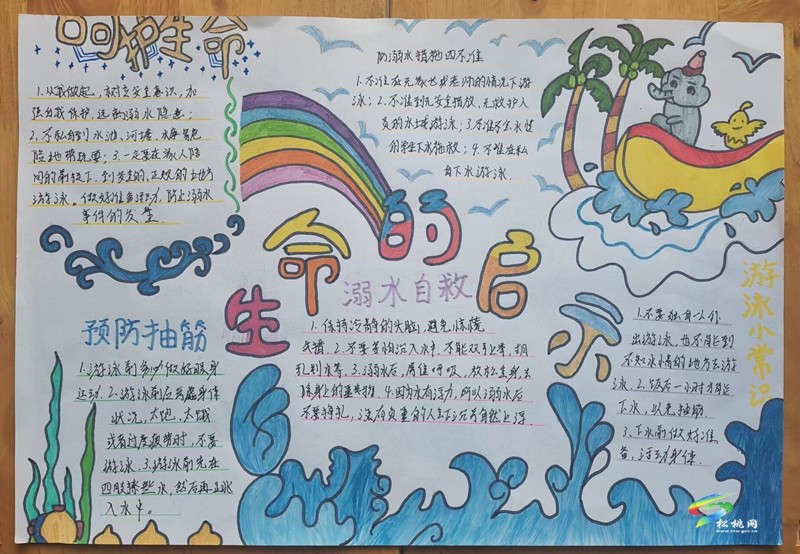 呵护生命
1.从我做起,树立安全意识,加
强自我保护,远离溺水隐患;
2.不私自到水池、河塘、水库等危
险地带玩耍;3.一定要在家人陪
同的前提下,到安全的、正规的地方
游泳。做好准备活动,防止溺水
事件的发生
防溺水措施四不准
1.不准在无家长或老师的情况下游
泳;2.不准到无安全措施,无救护人
员的水域游泳;3.不准不会水性
的学生下水施救;4.不准在私
自下水游泳.
生命的启示
溺水自救
1.保持冷静的头脑,避免惊慌
失措.2.不要害怕沉入水中,不能双手上举,胡
乱划水等.3.溺水后,屏住呼吸,放松全身,去
除身上的重其物.4.因为水有浮力,所以溺水后
不要挣扎,没有负重的人
自然上浮.
预防抽筋
1.游泳前务必做好暖身
运动.2.游泳前应考虑身体
状况,太饱、太饿
或者过度疲劳时,不要
游泳.3.游泳前先在
四肢撩些水,然后再
入水中.
游泳小常识
1.不要独自一人外
出游泳,也不能到
不知水情的地方去游
泳.2.饭后一小时才能
下水,以免抽筋
3.下水前做好准
备,活动身体.
松桃网